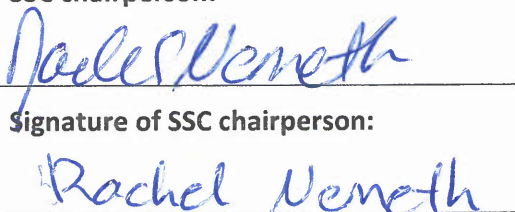 SSC chairperson:
Nemeth
Signature of SSC chairperson:
Rachel Nemeth